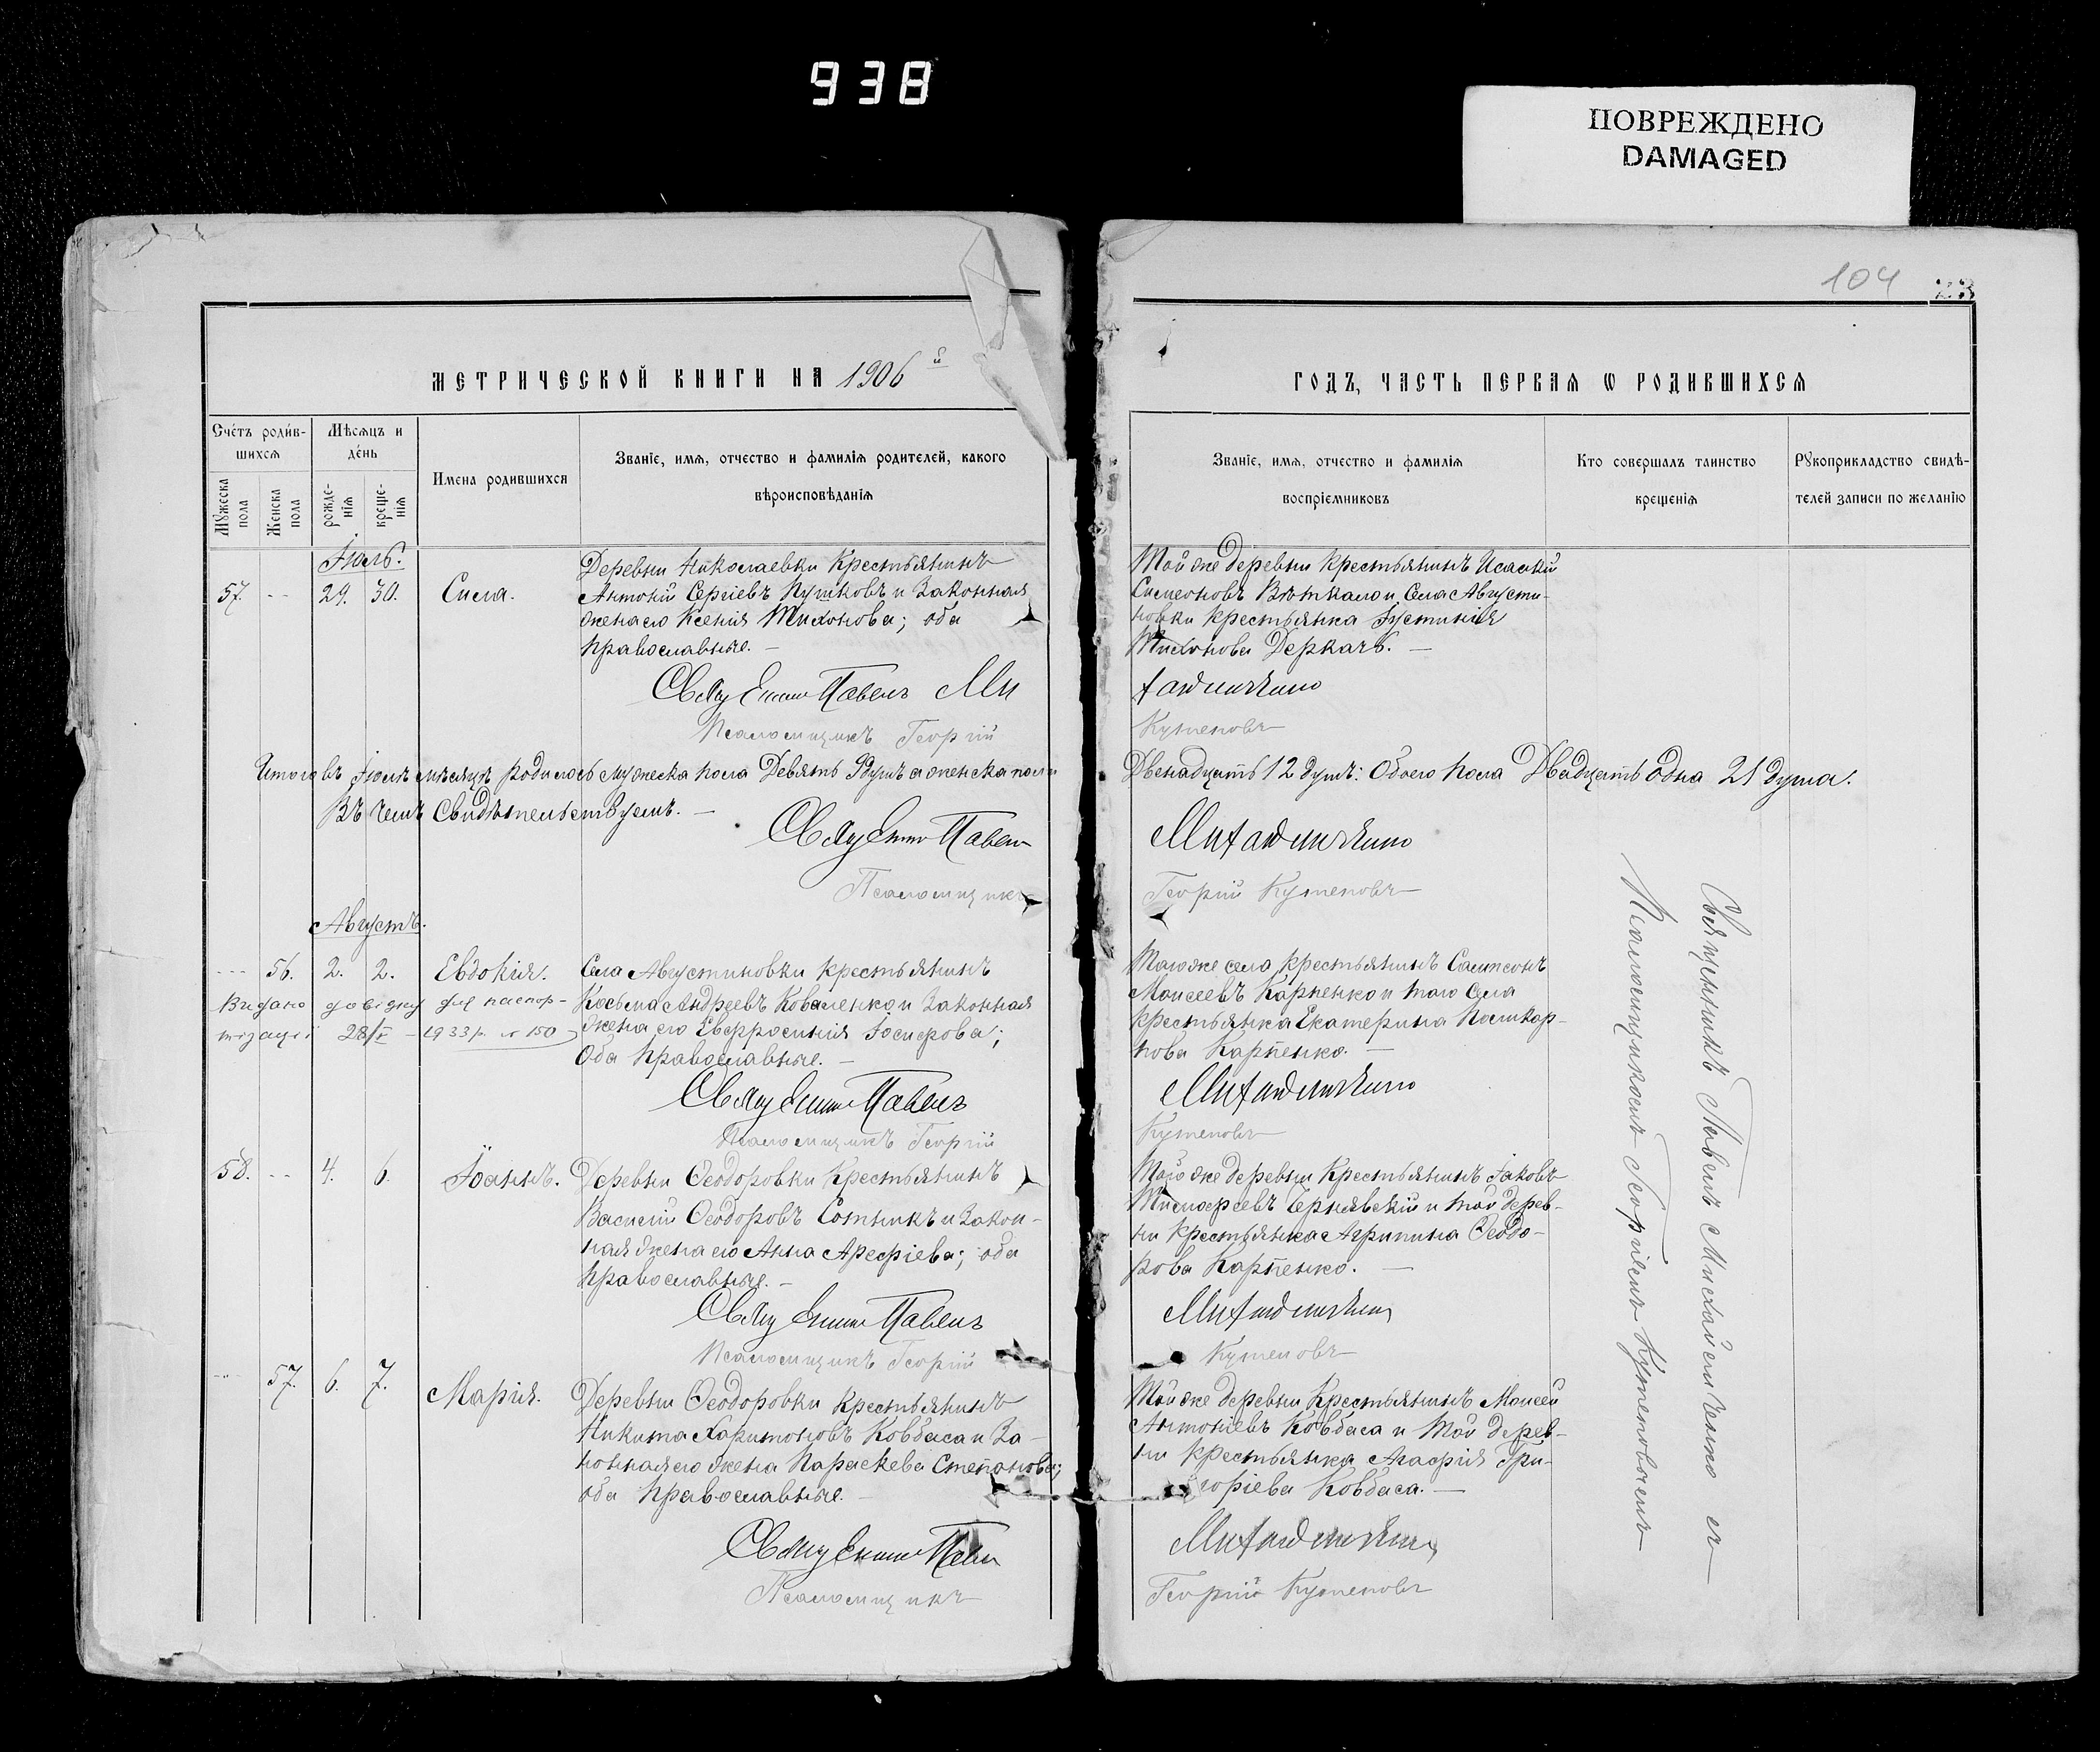 938
ПОВРЕЖДЕНО
DAMAGED
104
23
МЕТРИЧЕСКОЙ КНИГИ НА 1906й
Счетъ родив-
шихся
Мѣсяцъ и
день
Имена родившихся
Званіе, имя, отчество и фамилія родителей, какого
вѣроисповѣданія
Мужеска
пола
Женска
пола
рожде-
нія
креще-
нія
Іюль.
57. -- 29. 30. Сила.
Деревни Николаевки крестьянинъ
Антоній Сергіевъ Пушковъ и законная
жена его Ксенія Тихонова; оба
православные. —
Священникъ Павелъ Ми
Псаломщикъ Георгій
Итого въ Іюлѣ мѣсяцѣ родилось мужеска пола Девять 9 душъ а женска пола
Въ чемъ свидѣтельствуемъ. —
Священникъ Павелъ
Псаломщикъ
Августъ.
--- 56. 2. 2. Евдокія.
Села Августиновки крестьянинъ
Косьма Андреевъ Коваленко и законная
жена его Евфросинія Іосифова;
Оба православные. —
Видано довідку для паспор-
тизації 28/V – 1933 р. № 150
Священникъ Павелъ
Псаломщикъ Георгій
58. -- 4. 6. Іоаннъ.
Деревни Ѳеодоровки крестьянинъ
Василій Ѳеодоровъ Сотникъ и закон-
ная жена его Анна Арефіева; оба
православные. —
Священникъ Павелъ
Псаломщикъ Георгій
--- 57. 6. 7. Марія.
Деревни Ѳеодоровки крестьянинъ
Никита Харитоновъ Ковбаса и за-
конная его жена Параскева Степанова;
оба православные. —
Священникъ Павелъ
Псаломщикъ
ГОДЪ, ЧАСТЬ ПЕРВАЯ Ѡ РОДИВШИХСЯ
Званіе, имя, отчество и фамилія
воспріемниковъ
Кто совершалъ таинство
крещенія
Рукоприкладство свидѣ-
телей записи по желанію
Той же деревни крестьянинъ Исаакій
Симеоновъ и Села Августи-
новки крестьянка Іустинія
Тихонова Деркачъ. —
Кутеповъ
Двенадцать 12 душъ: Обоего пола Двадцать одна 21 душа.
Георгій Кутеповъ
Тогоже села крестьянинъ Сампсонъ
Моисеевъ Карпенко и того села
крестьянка Екатерина Поликар-
пова Карпенко. —
Кутеповъ
Той же деревни крестьянинъ Іаковъ
Тимофеевъ Чернявскій и той дерев-
ни крестьянка Агрипина Ѳеодо-
рова Карпенко. —
Кутеповъ
Той же деревни крестьянинъ Моисей
Антоніевъ Ковбаса и той дерев-
ни крестьянка Агафія Гри-
горіева Ковбаса. —
Георгій Кутеповъ
Священникъ Павелъ съ
Псаломщикомъ Георгіемъ Кутеповымъ